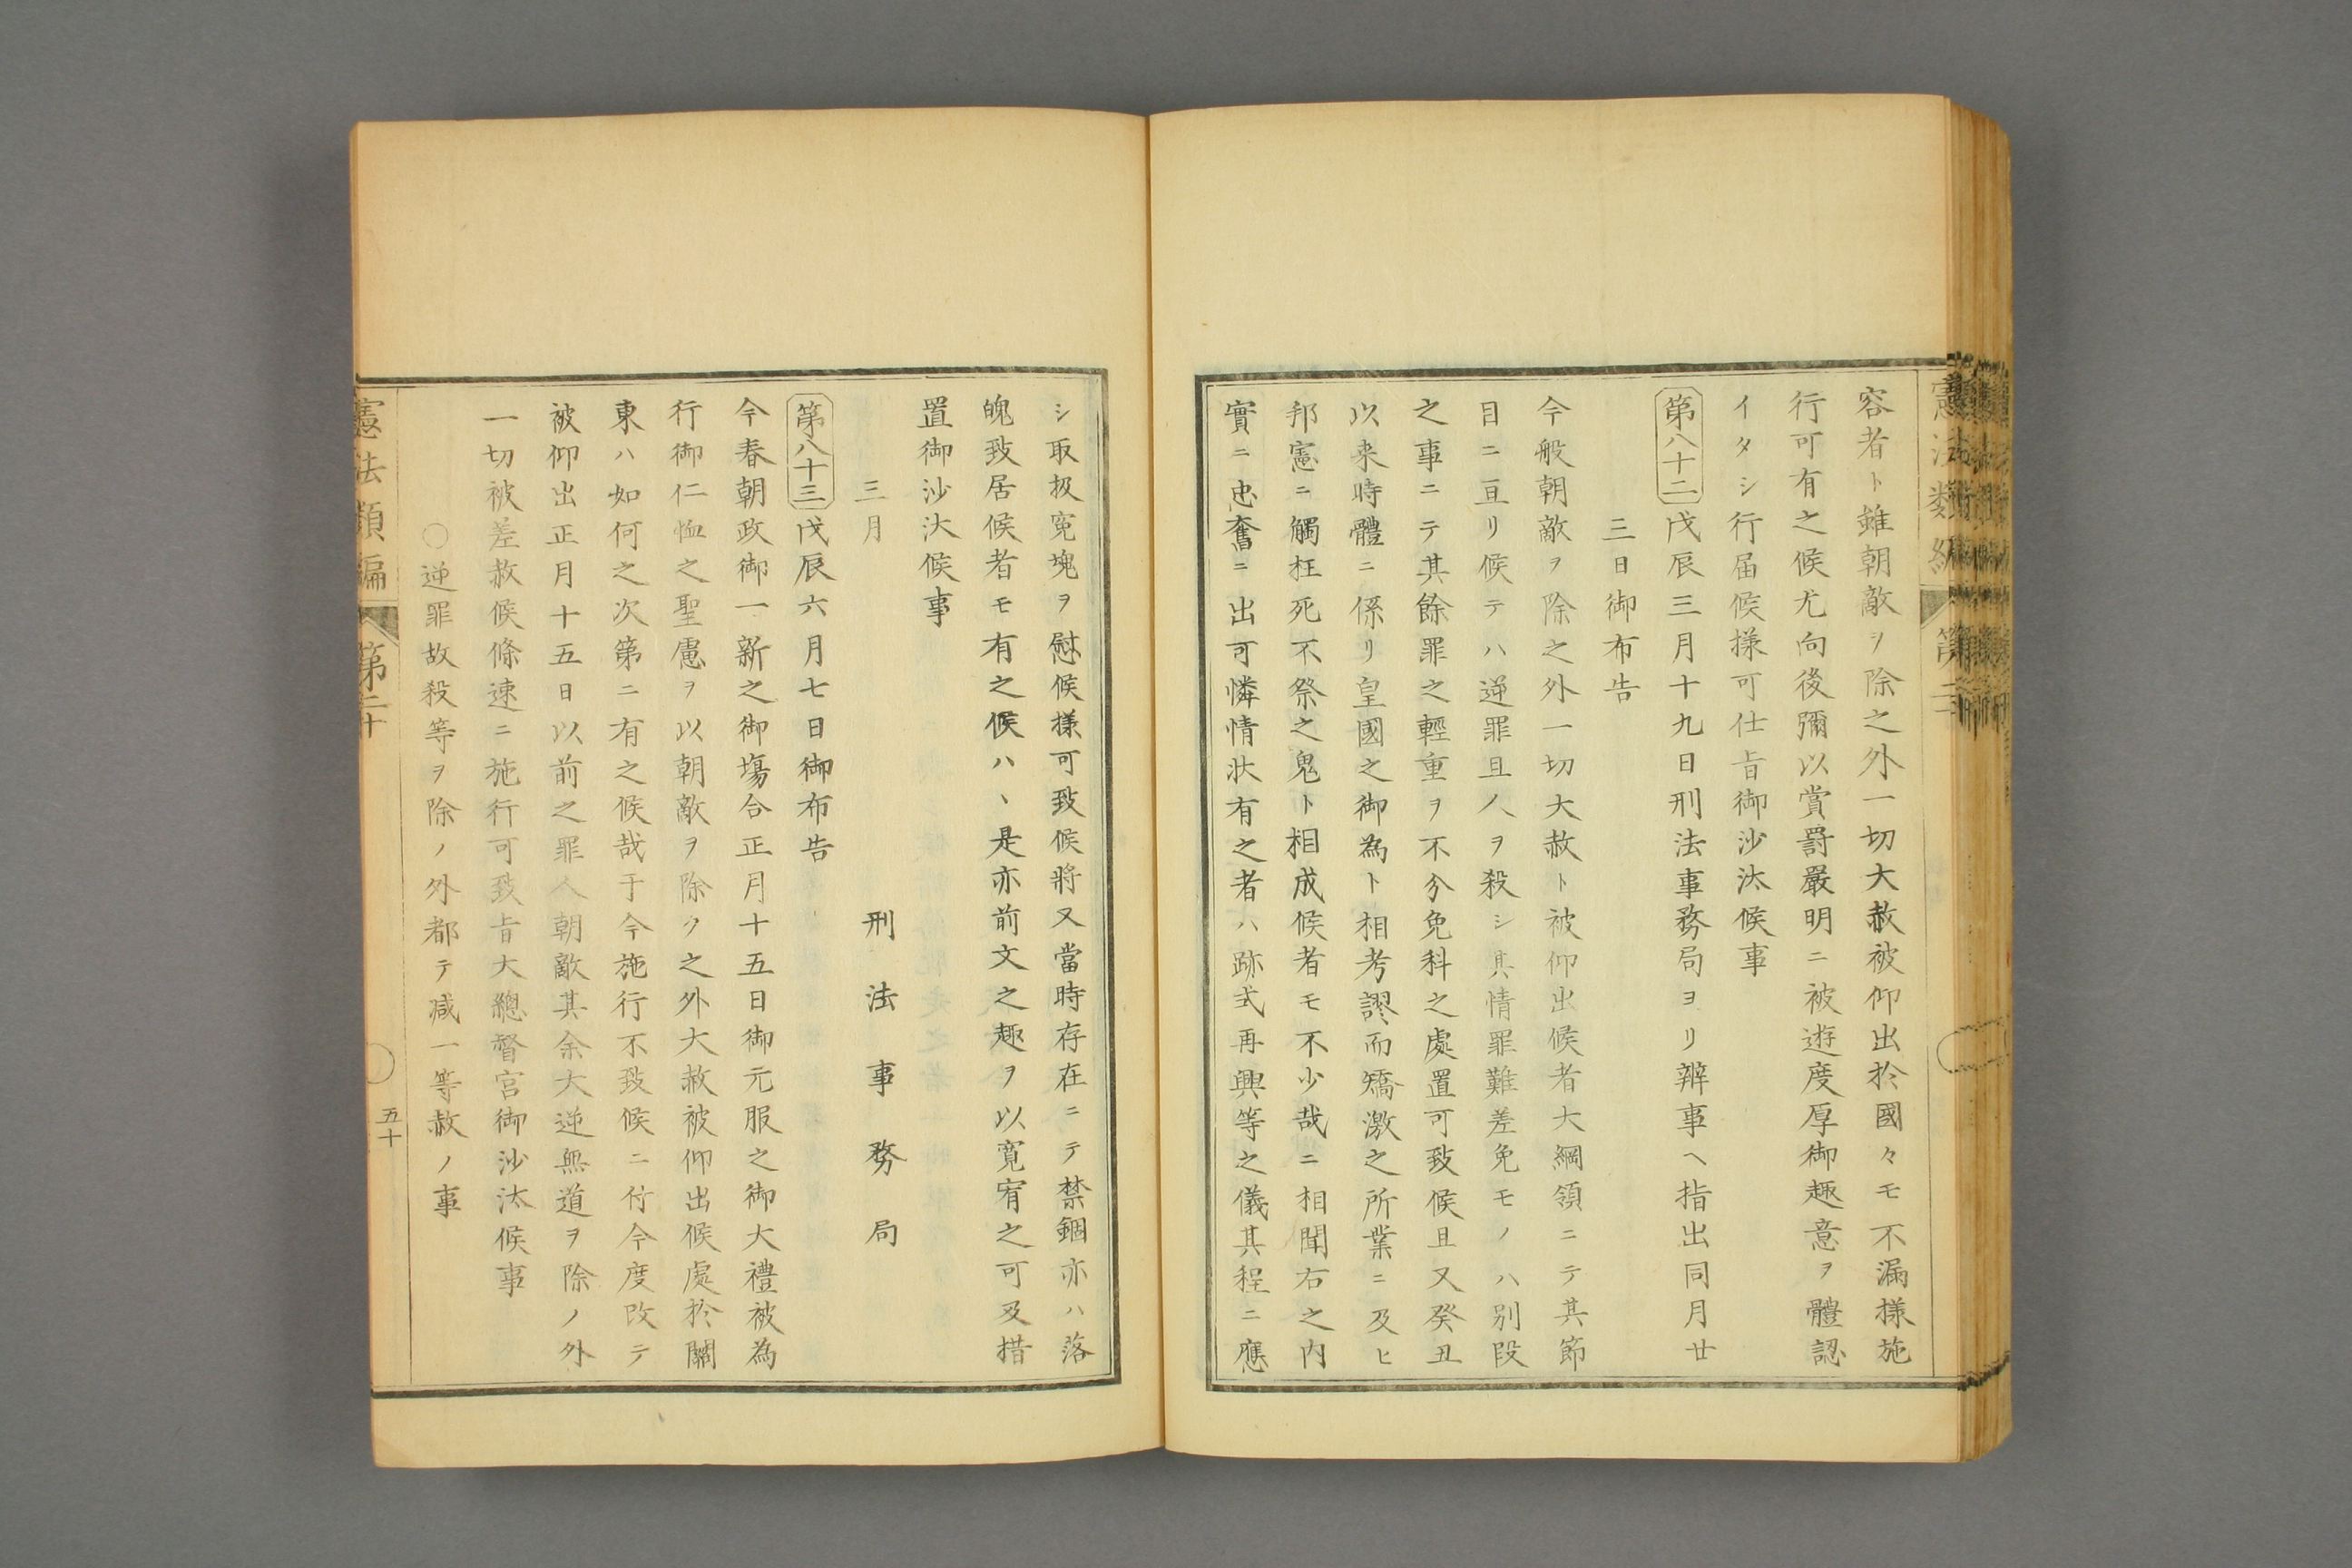 容者ト雖朝敵ヲ除之外一切大赦被仰出於國々モ不漏様施
行可有之候尤向後彌以賞罰嚴明ニ被遊度厚御趣意ヲ體認
イタシ行届候様可仕旨御沙汰候事
第八十二戊辰三月十九日刑法事務局ヨリ辨事ヘ指出同月廿
三日御布告
今般朝敵ヲ除之外一切大赦ト被仰出候者大綱領ニテ其節
目ニ亘リ候テハ逆罪且人ヲ殺シ其情罪難差免モノハ別段
之事ニテ其餘罪之輕重ヲ不分免科之處置可致候且又癸丑
以来時體ニ係リ皇國之御為ト相考謬而矯激之所業ニ及ヒ
邦憲ニ觸枉死不祭之鬼ト相成候者モ不少哉ニ相聞右之内
實ニ忠奮ニ出可憐情状有之者ハ跡式再興等之儀其程ニ應
シ取扱寃塊ヲ慰候様可致候將又當時存在ニテ禁錮亦ハ落
魄致居候者モ有之候ハヽ是亦前文之趣ヲ以寛宥之可及措
置御沙汰候事
三月
刑法事務局
第八十三戊辰六月七日御布告
今春朝政御一新之御塲合正月十五日御元服之御大禮被為
行御仁恤之聖慮ヲ以朝敵ヲ除ク之外大赦被仰出候處於關
東ハ如何之次第ニ有之候哉于今施行不致候ニ付今度改テ
被仰出正月十五日以前之罪人朝敵其余大逆無道ヲ除ノ外
一切被差赦候條速ニ施行可致旨大總督宮御沙汰候事
○逆罪故殺等ヲ除ノ外都テ減一等赦ノ事
憲法類編 第二十
五十